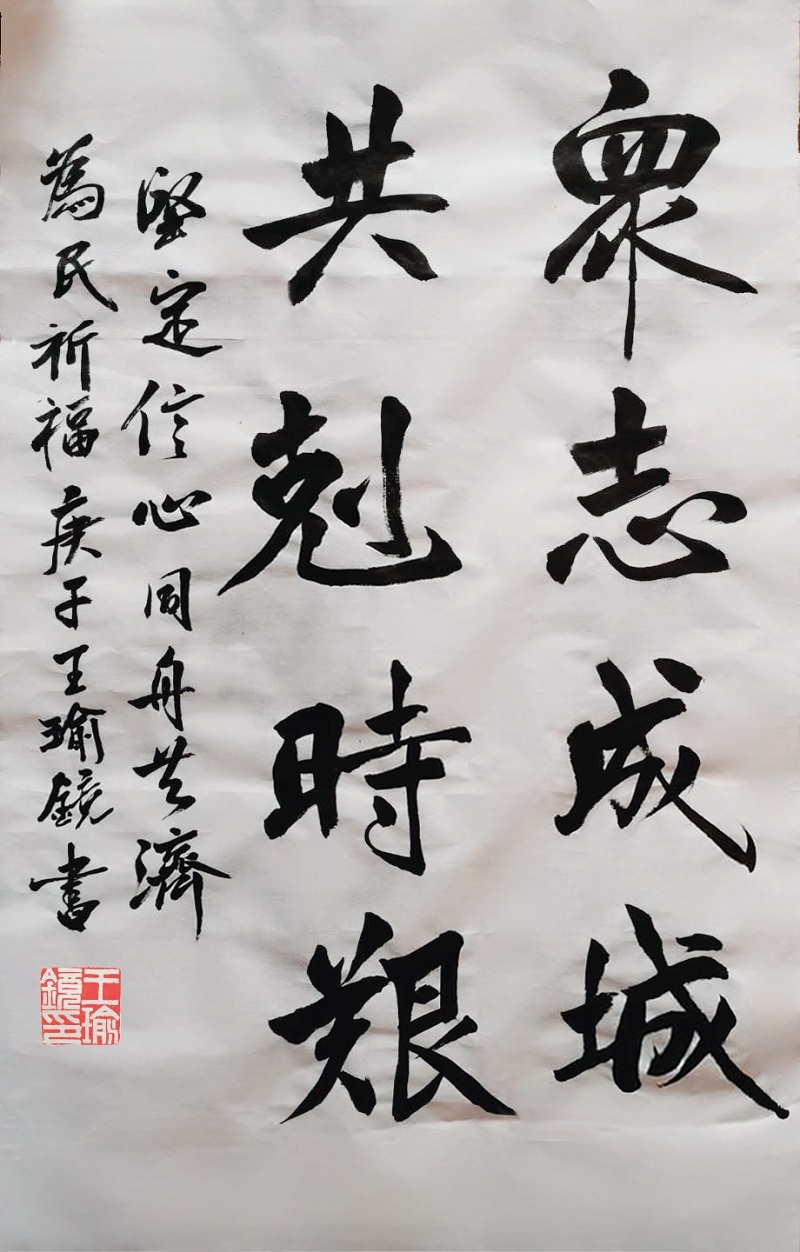 眾志成城
共剋時艱
堅定信心同舟共濟
為民祈福庚子王瑜鏡書
王瑜鏡印